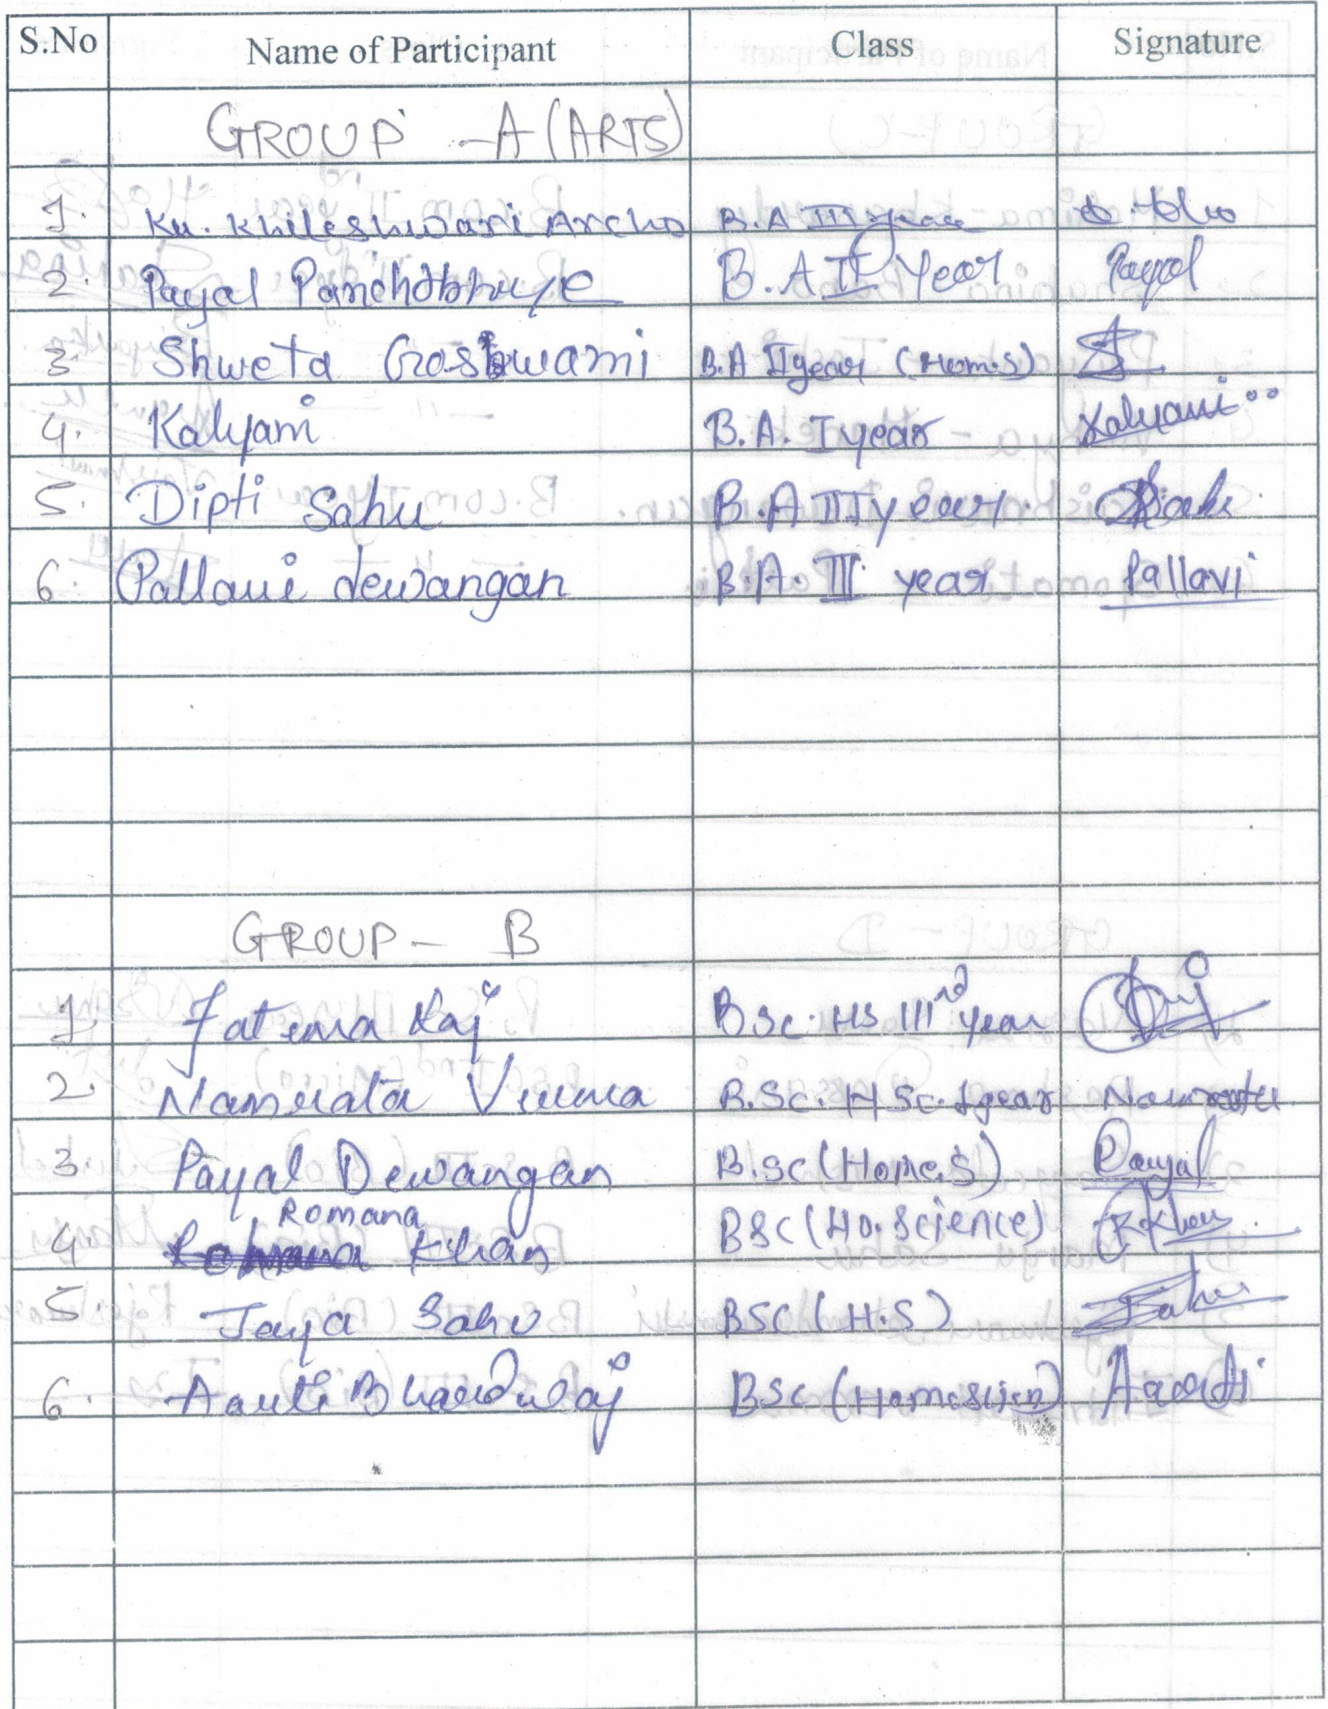 S.No Name of Participant Class Signature
GROUP - A (ARTS)
1. Ku. Khileshwari Archo B.A III year
2. Payal Panchbhaye B.A II Year Payal
3 Shweta Goshwami B.A II year (Home.S)
4. Kalyani B.A. I year Kalyani
5. Dipti Sahu B.A III year.
6. Pallavi dewangan B.A. III year Pallavi
GROUP - B
1. Fatema Raj B.Sc. HS III rd year
2. Namrata Verma B.Sc. H Sc. I year Namrata
3 Payal Dewangan B.sc (Home.S) Payal
Romana
4 Khan BSC (Ho. Science) R Khan
5 Jaya Sahu BSC (H.S) Sahu
6. Aarti Bhardwaj BSC (Home Scien) Aarti